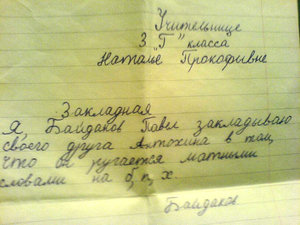 Учительнице
3 "Г" класса
Наталье Прокофьвне
Закладная
Я, Байдаков Паве закладываю
своего друга Антохина в том,
что он ругается матными
словами на б, п, х.
Байдаков